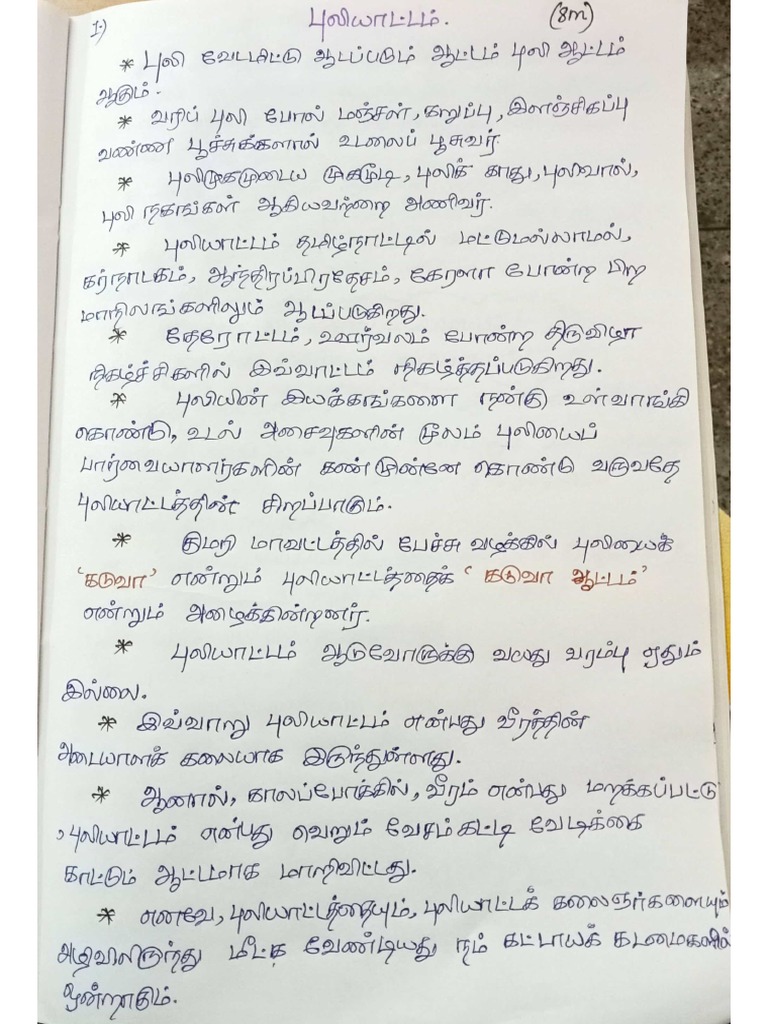 1.) புலியாட்டம். (8m)
* புலி வேடமிட்டு ஆடப்படும் ஆட்டம் புலி ஆட்டம்
ஆகும்.
* வரிப் புலி போல் மஞ்சள், கறுப்பு, இளஞ்சிகப்பு
வண்ண பூச்சுக்களால் உடலைப் பூசுவர்.
* புலிமுகமுடைய முகமூடி, புலிக் காது, புலிவால்,
புலி நகங்கள் ஆகியவற்றை அணிவர்.
* புலியாட்டம் தமிழ்நாட்டில் மட்டுமல்லாமல்,
கர்நாடகம், ஆந்திரப்பிரதேசம், கேரளா போன்ற பிற
மாநிலங்களிலும் ஆடப்படுகிறது.
* தேரோட்டம், ஊர்வலம் போன்ற திருவிழா
நிகழ்ச்சிகளில் இவ்வாட்டம் நிகழ்த்தப்படுகிறது.
* புலியின் இயக்கங்களை நன்கு உள்வாங்கி
கொண்டு, உடல் அசைவுகளின் மூலம் புலியைப்
பார்வையாளர்களின் கண்முன்னே கொண்டு வருவதே
புலியாட்டத்தின் சிறப்பாகும்.
* குமரி மாவட்டத்தில் பேச்சு வழக்கில் புலியைக்
'கடுவா' என்றும் புலியாட்டத்தைக் ' கடுவா ஆட்டம்'
என்றும் அழைக்கின்றனர்.
* புலியாட்டம் ஆடுவோருக்கு வயது வரம்பு ஏதும்
இல்லை.
* இவ்வாறு புலியாட்டம் என்பது வீரத்தின்
அடையாளக் கலையாக இருந்துள்ளது.
* ஆனால், காலப்போக்கில், வீரம் என்பது மறக்கப்பட்டு
, புலியாட்டம் என்பது வெறும் வேசம்கட்டி வேடிக்கை
காட்டும் ஆட்டமாக மாறிவிட்டது.
* எனவே, புலியாட்டத்தையும், புலியாட்டக் கலைஞர்களையும்
அழிவிலிருந்து மீட்க வேண்டியது நம் கட்டாயக் கடமைகளில்
ஒன்றாகும்.